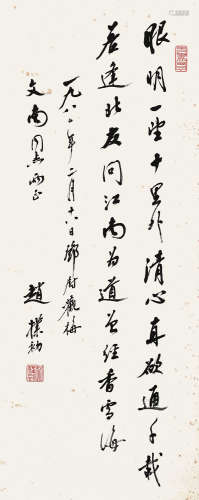 眼明一望十里外清心真欲通千载
若逢北友问江南为道曾经香雪海
一九八二年二月十六日邓尉观梅
文南同志两正
赵朴初